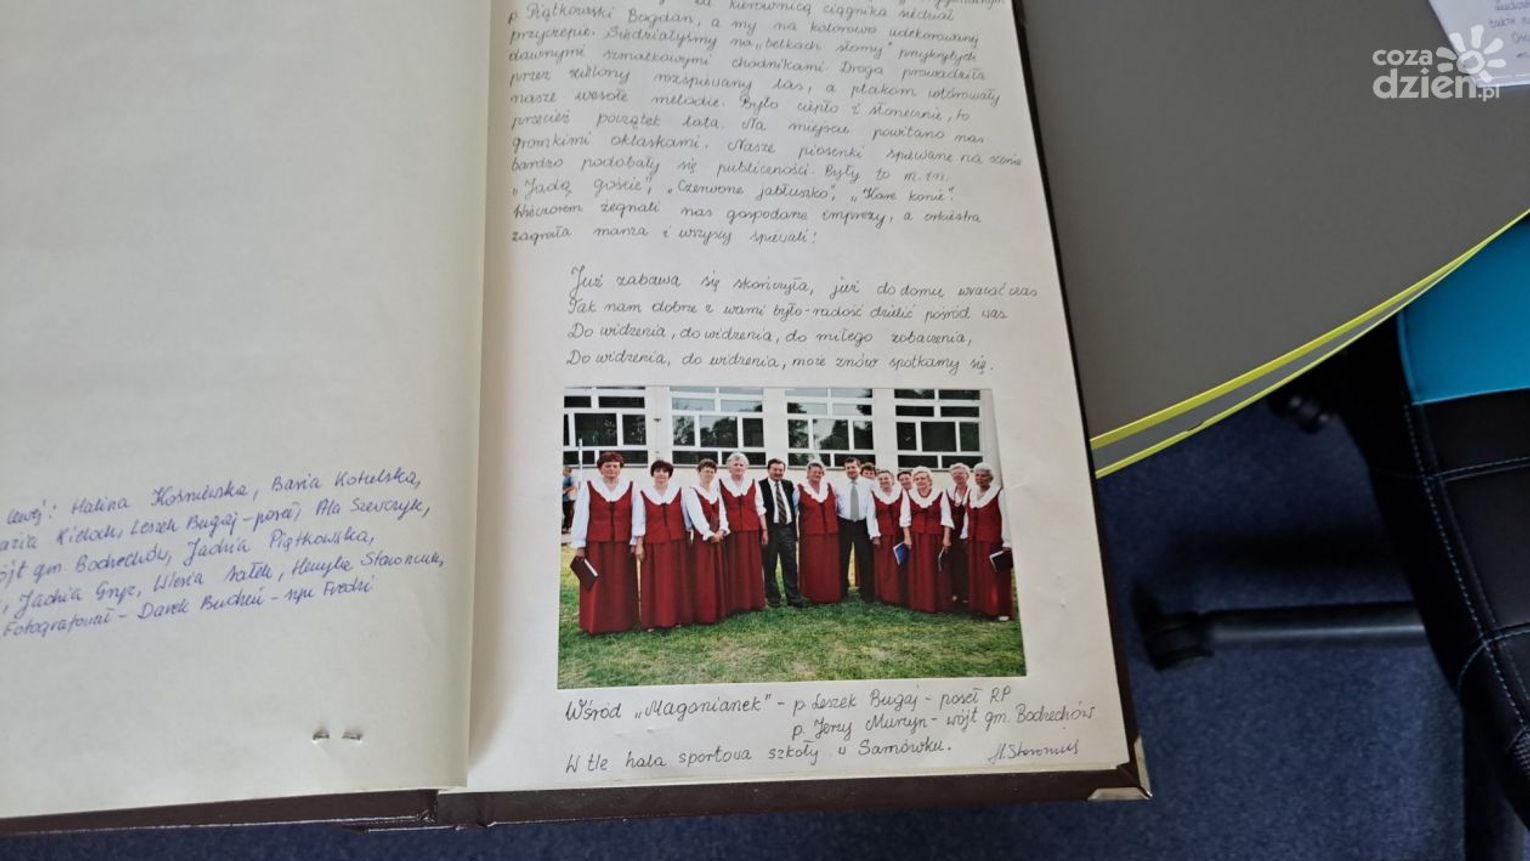 lewej: Halina Kośmirska, Basia Kotulska,
Kieloch, Leszek Bugaj - poseł, Ala Szewczyk,
wójt gm. Bodzechów, Jadzia Piątkowska,
Jadzia Gryz, Wiesia Sałek, Henryka
Fotografował - Darek
kierownicą ciągnika siedział
p. Piątkowski Bogdan, a my na kolorowo udekorowanej
przyczepie. Siedziałyśmy na „belkach słomy” przykrytych
dawnymi szmatkowymi chodnikami. Droga prowadziła
przez zielony rozśpiewany las, a ptakom wtórowały
nasze wesołe melodie. Było ciepło i słonecznie, to
przecież początek lata. Na miejscu powitano nas
gromkimi oklaskami. Nasze piosenki śpiewane na scenie
bardzo podobały się publiczności. Były to m.in.
„Jadą goście”, „Czerwone jabłuszko”, „Kare konie”.
Wieczorem żegnali nas gospodarze imprezy, a orkiestra
zagrała marsza i wszyscy śpiewali!
Już zabawa się skończyła, już do domu wracać czas
Tak nam dobrze z wami było - radość dzielić pośród was
Do widzenia, do widzenia, do miłego zobaczenia,
Do widzenia, do widzenia, może znów spotkamy się.
Wśród „Magonianek” - p. Leszek Bugaj - poseł RP
p. Jerzy Murzyn - wójt gm. Bodzechów
W tle hala sportowa szkoły w Sarnówku.
coza
dzień.pl